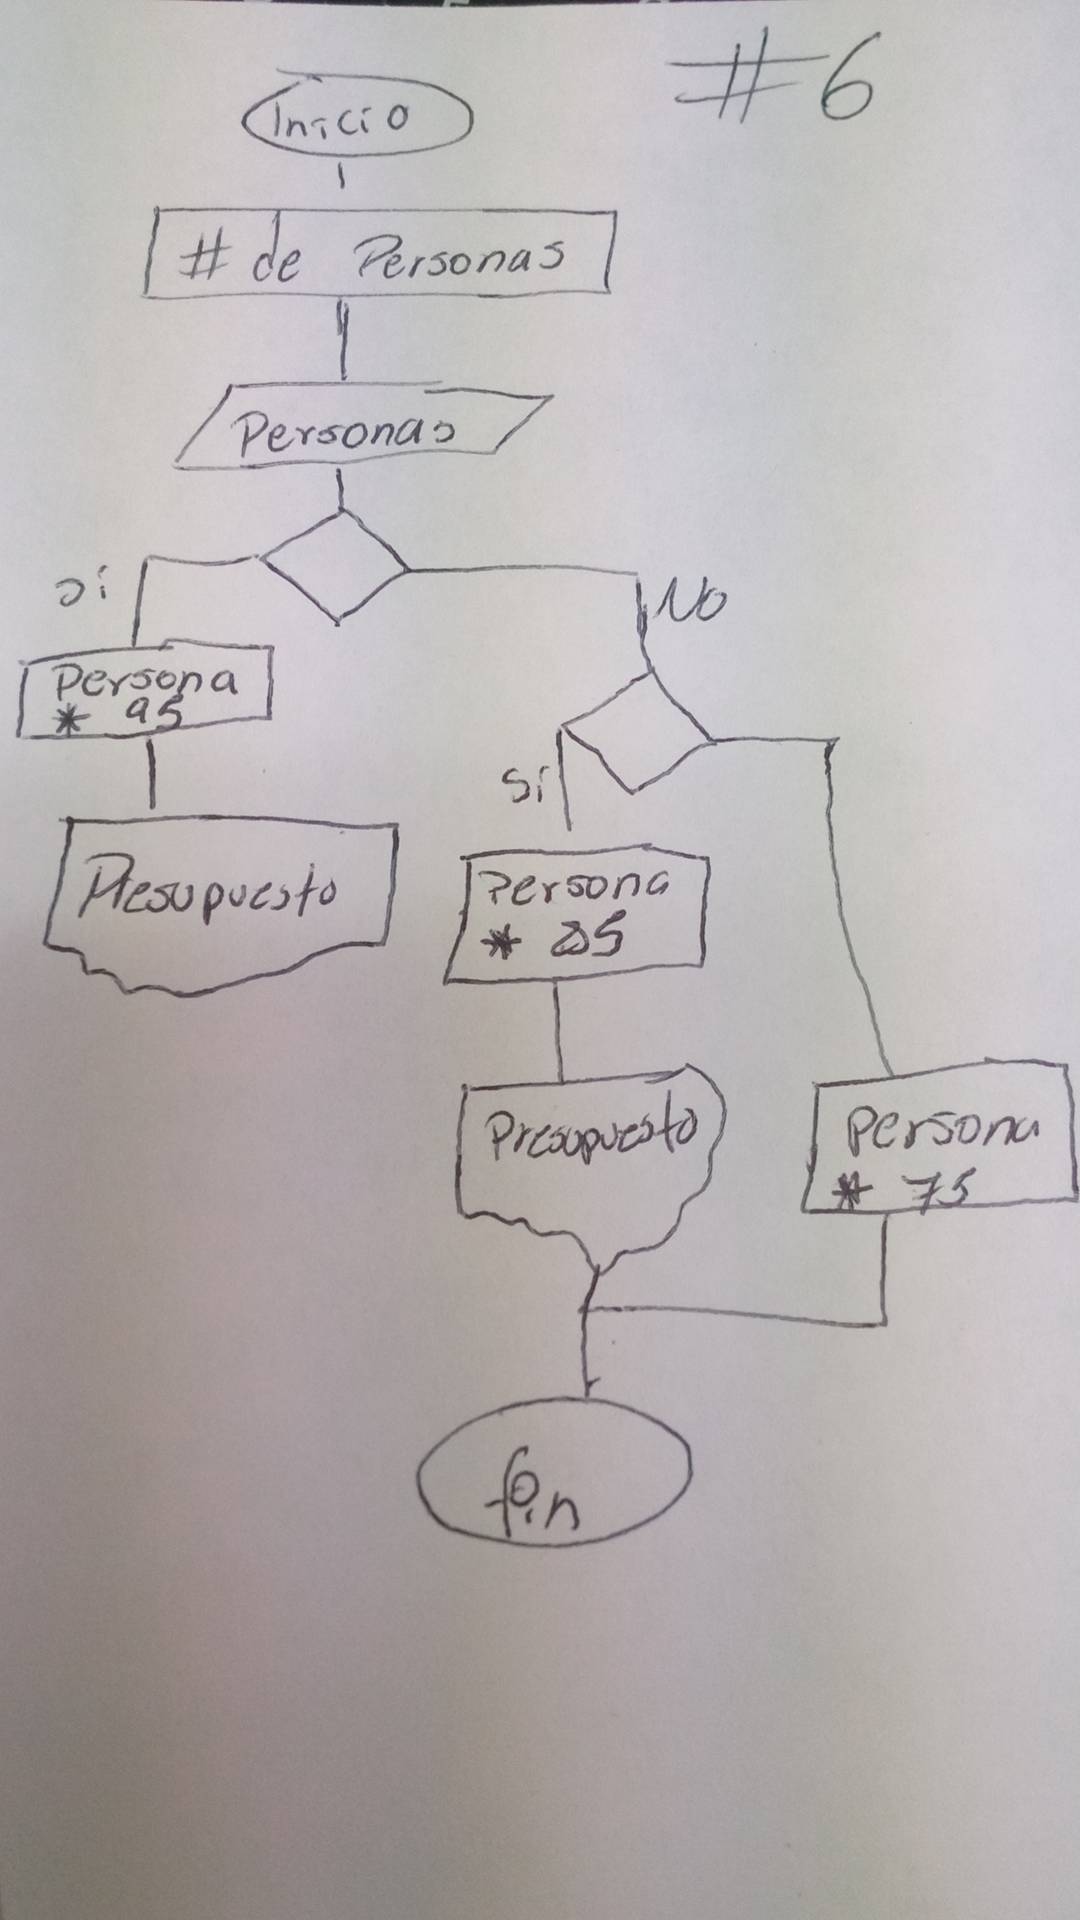 #6
Inicio
# de Personas
Personas
si
No
Persona
* 95
Si
Presupuesto
Persona
* 85
Presupuesto
Persona
* 75
fin